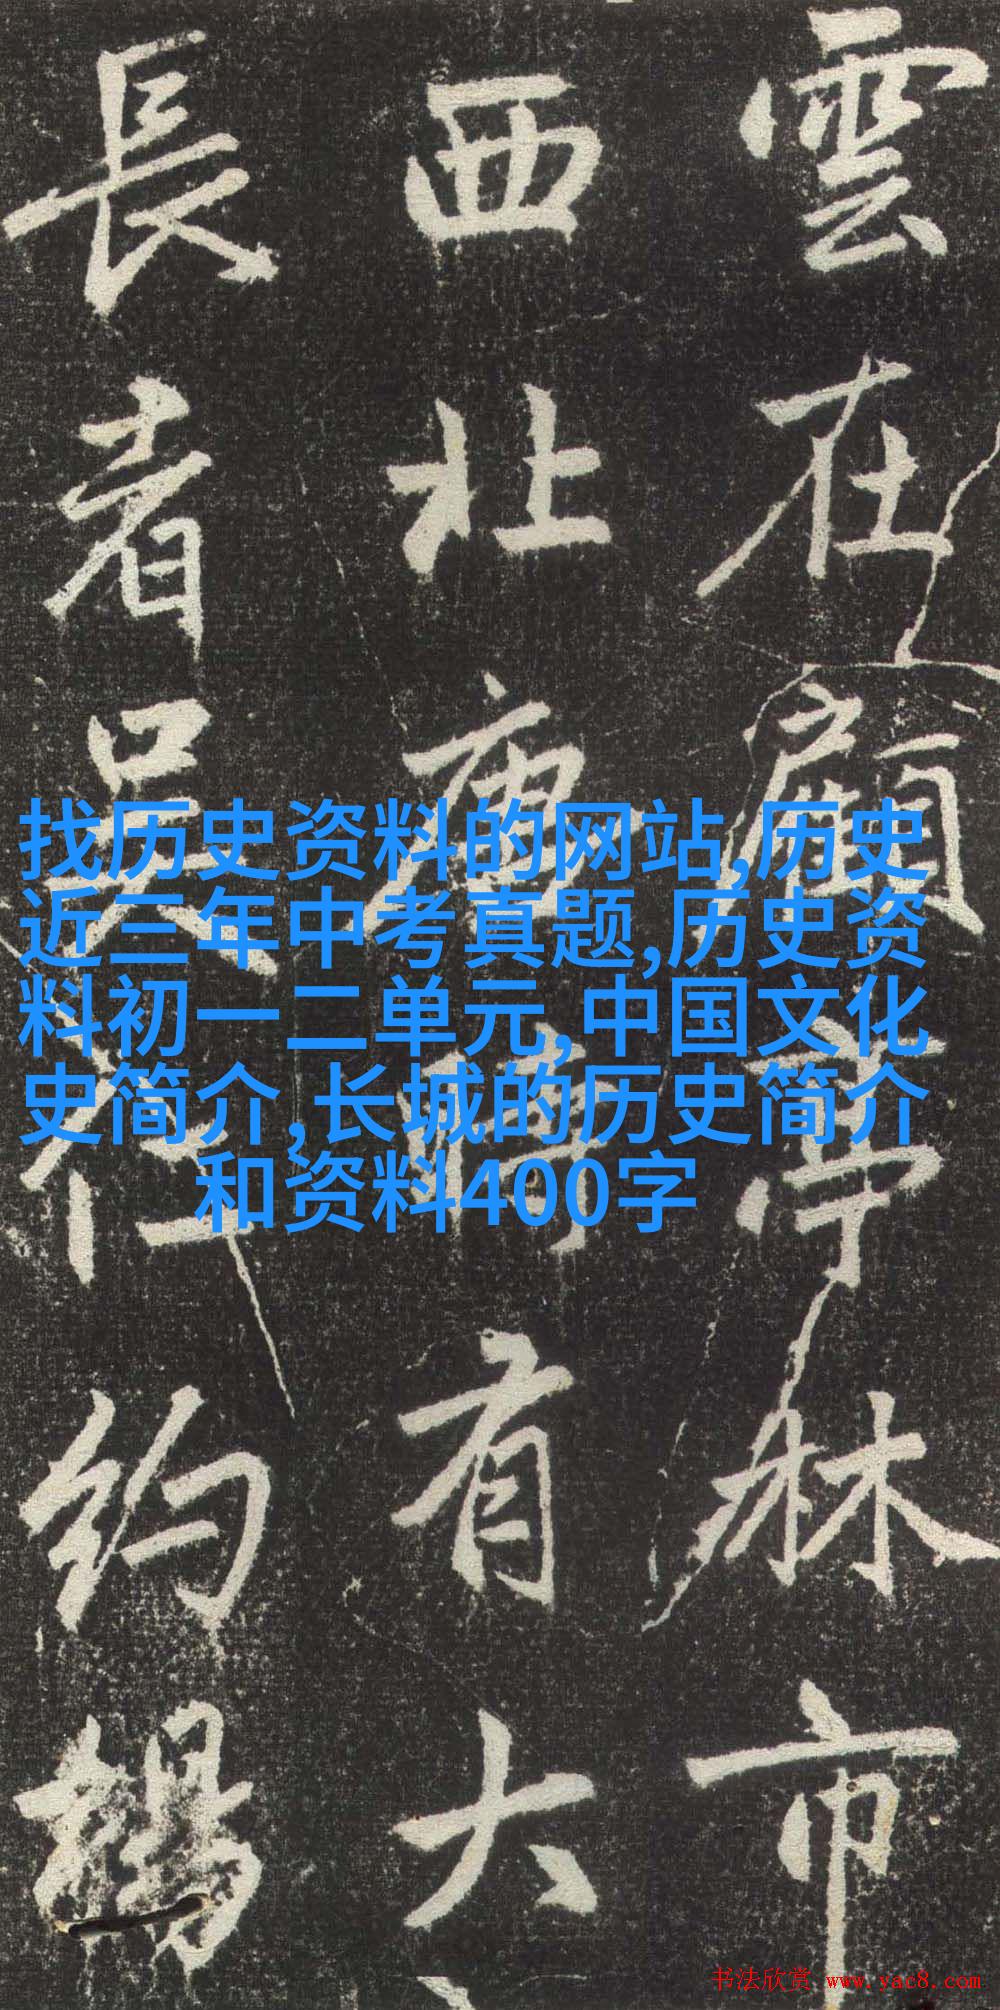 雲在顧亭林市
西北庚時有大
長者吳
約楊
找历史资料的网站,历史
近三年中考真题,历史资
料初一二单元,中国文化
史简介,长城的历史简介
和资料400字
书法欣赏 www.yac8.com